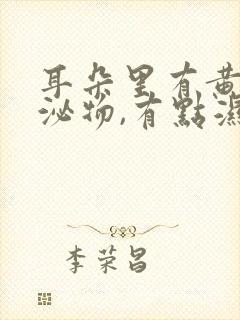 耳朵里有黄
泌物,有點濕
李荣昌